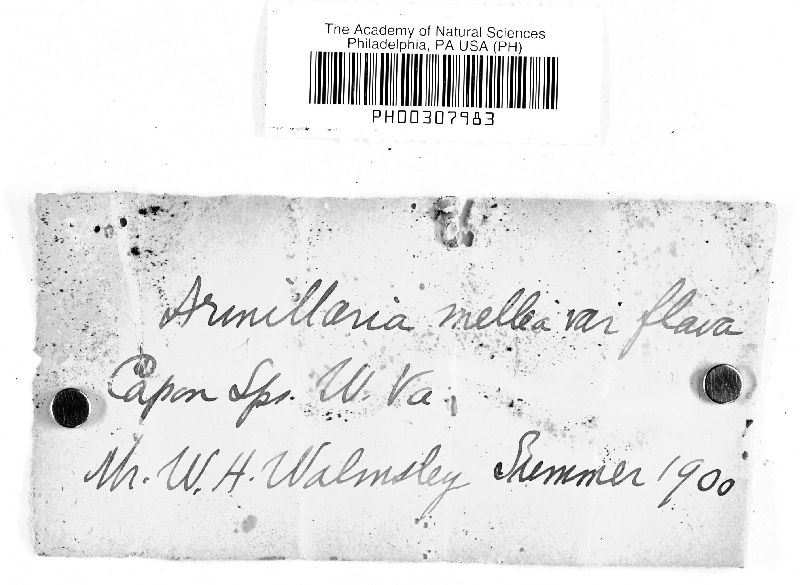 The Academy of Natural Sciences
Philadelphia, PA USA (PH)
PH00307983
Armillaria mellea var flava
Capon Sps. W. Va.
Mr. W. H. Walmsley Summer 1900